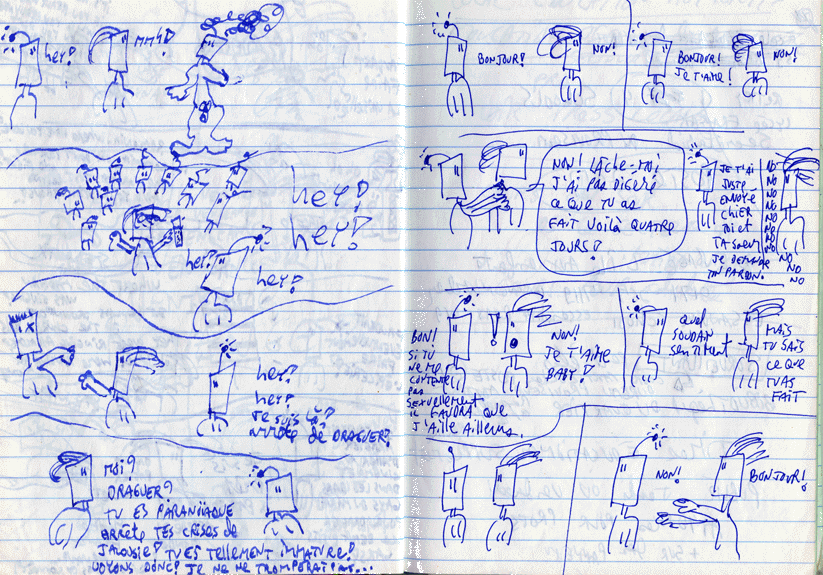 hey!
MMM!
hey!
hey!
hey?
hey!
hey?
hey?
Je suis là?
ARRÊTE DE DRAGUER?
MOI?
DRAGUER?
TU ES PARANOÏAQUE
ARRÊTE TES CRISES DE
JALOUSIE? TU ES TELLEMENT IMMATURE!
VOYONS DONC? JE NE TE
BONJOUR!
NON!
BONJOUR!
Je T'AIME!
NON!
NON! LÂCHE-MOI
J'AI PAS DIGÉRÉ
CE QUE TU AS
FAIT VOILÀ QUATRE
JOURS!
JE T'AI
JUSTE
ENVOYÉ
CHIER
TOI ET
TA SOEUR
JE DEMANDE
PARDON.
NO
NO
NO
NO
NO
NO
NO
NO
NO
NO
NO
BON!
SI TU
NE ME
CONTENTE
PAS
SEXUELLEMENT
IL FAUDRA QUE
J'AILLE AILLEURS.
!
NON!
JE T'AIME
BABY!
QUEL
SOUDAIN
SENTIMENT
MAIS
TU SAIS
CE QUE
TU AS
FAIT
NON!
BONJOUR!